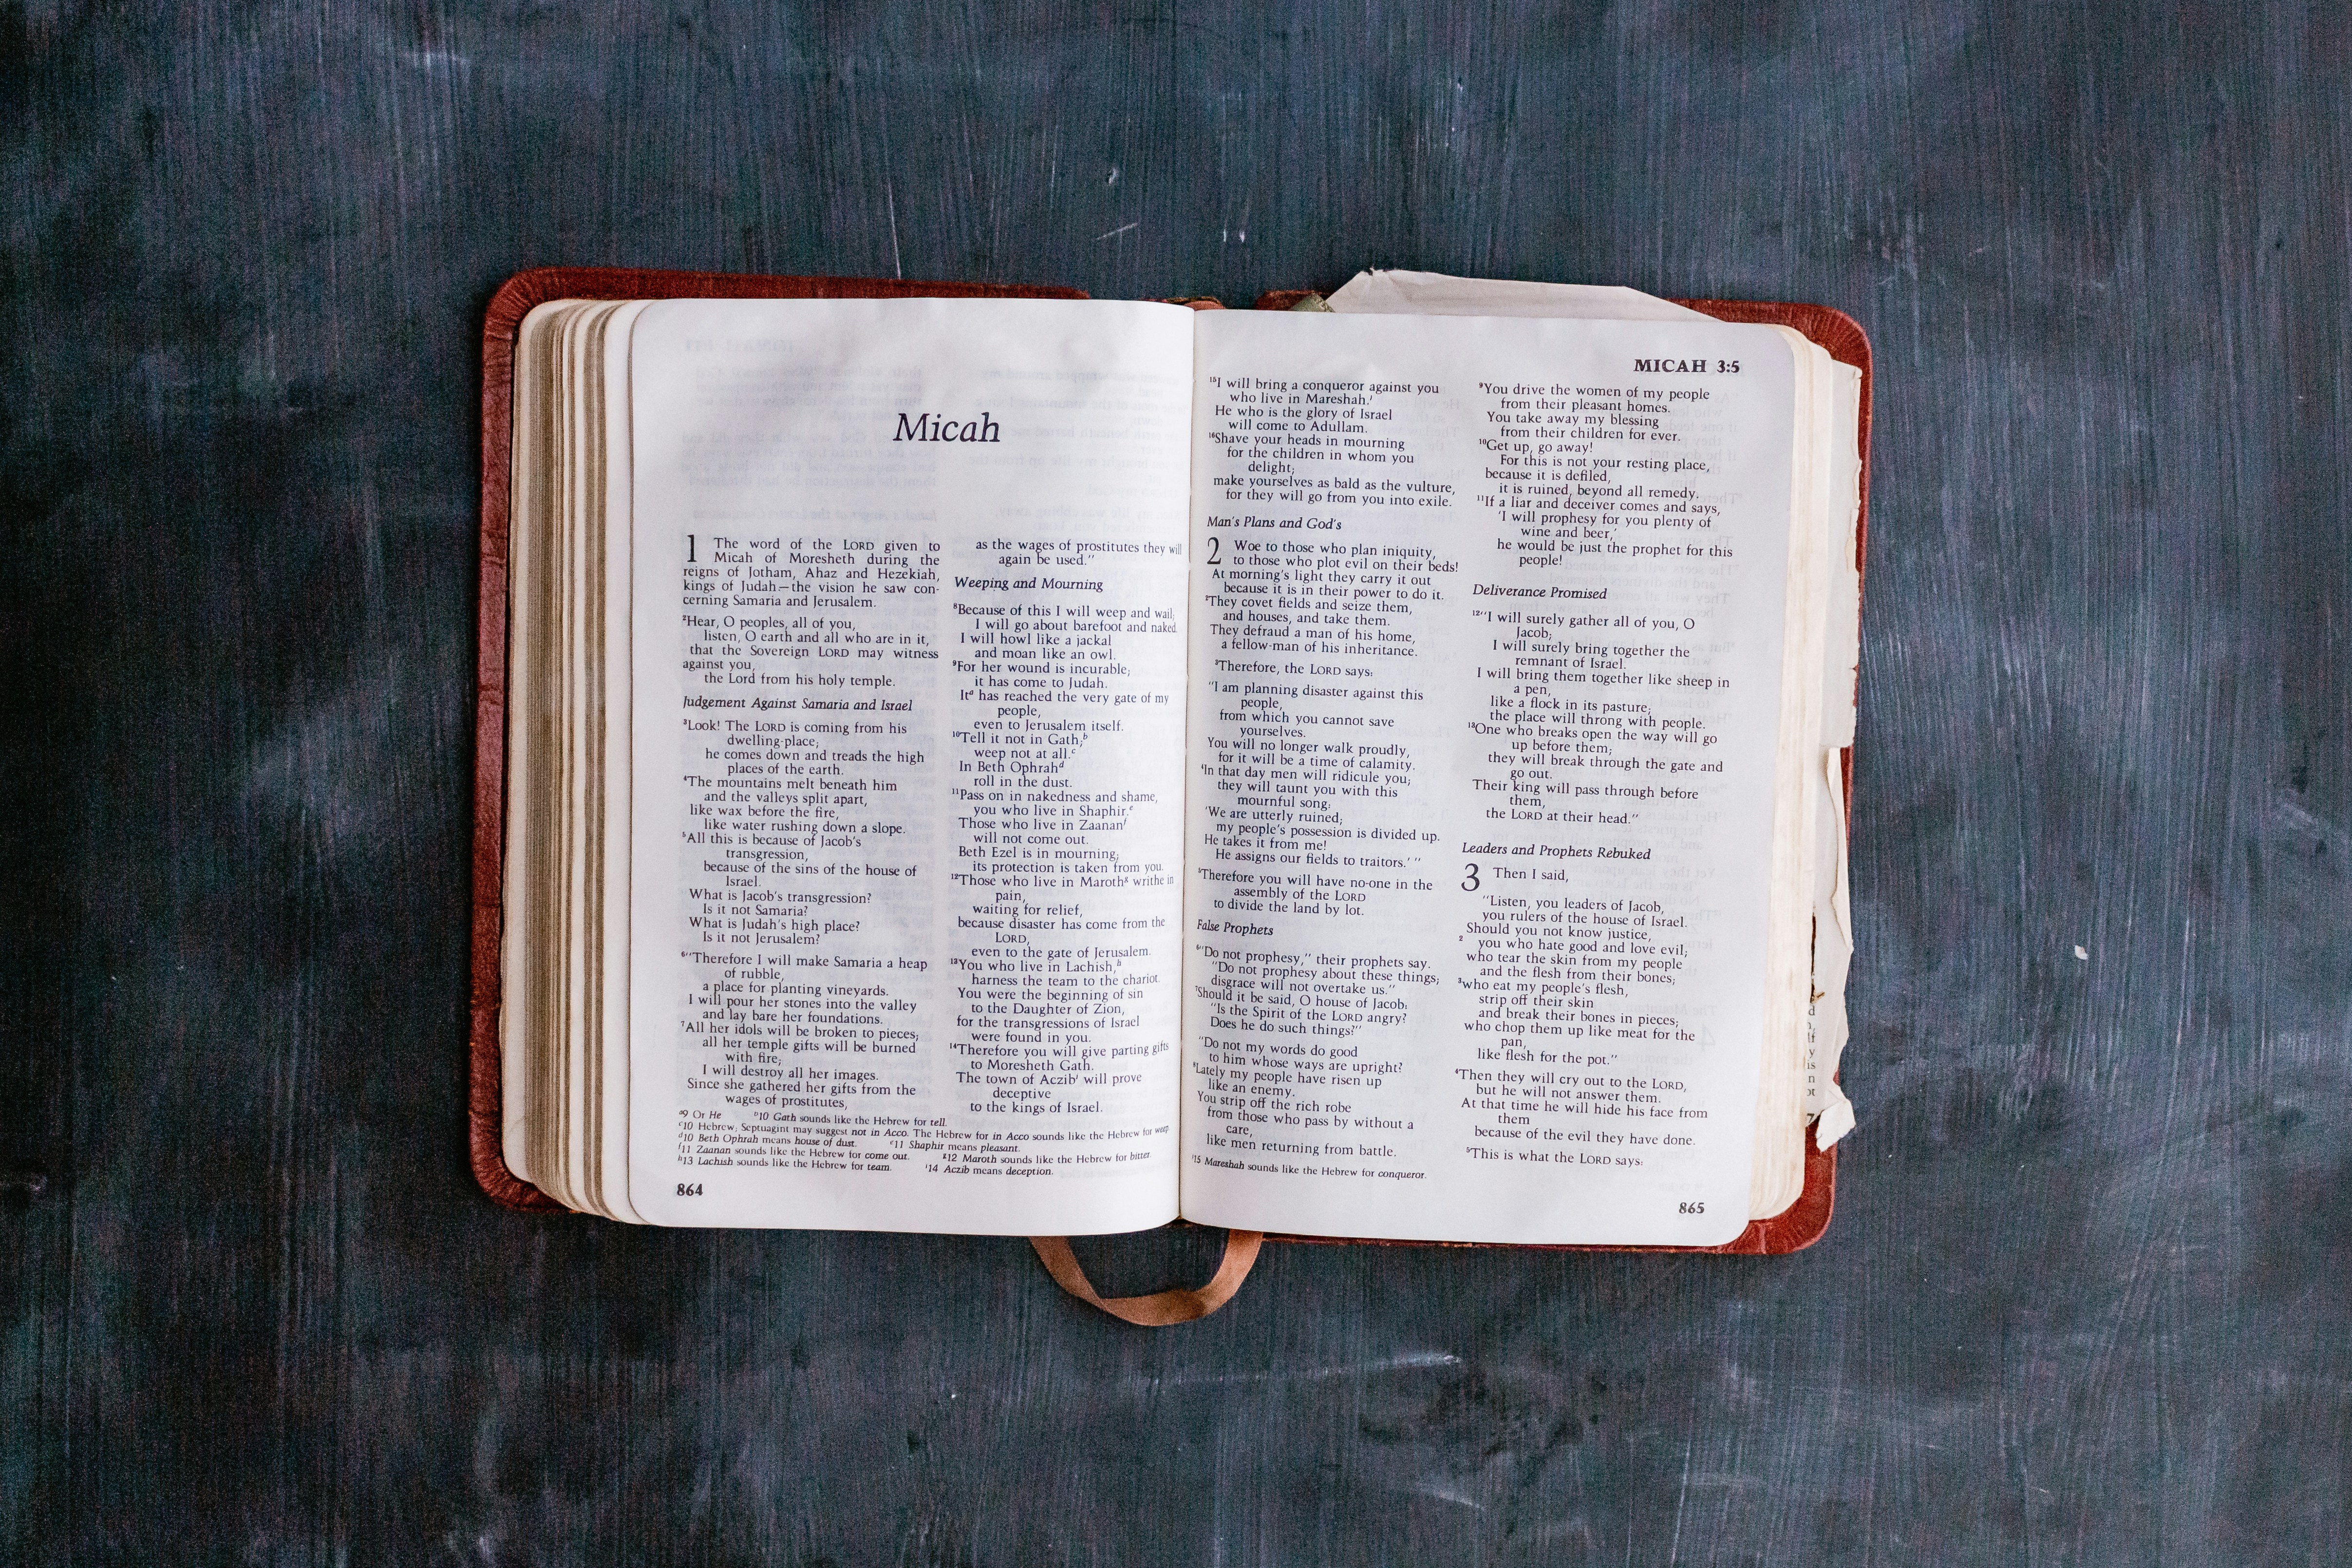 Micah
1 The word of the LORD given to
Micah of Moresheth during the
reigns of Jotham, Ahaz and Hezekiah,
kings of Judah—the vision he saw con-
cerning Samaria and Jerusalem.
2Hear, O peoples, all of you,
listen, O earth and all who are in it,
that the Sovereign LORD may witness
against you,
the Lord from his holy temple.
Judgement Against Samaria and Israel
3Look! The LORD is coming from his
dwelling-place;
he comes down and treads the high
places of the earth.
4The mountains melt beneath him
and the valleys split apart,
like wax before the fire,
like water rushing down a slope.
5All this is because of Jacob's
transgression,
because of the sins of the house of
Israel.
What is Jacob's transgression?
Is it not Samaria?
What is Judah's high place?
Is it not Jerusalem?
6"Therefore I will make Samaria a heap
of rubble,
a place for planting vineyards.
I will pour her stones into the valley
and lay bare her foundations.
7All her idols will be broken to pieces;
all her temple gifts will be burned
with fire;
I will destroy all her images.
Since she gathered her gifts from the
wages of prostitutes,
as the wages of prostitutes they will
again be used."
Weeping and Mourning
8Because of this I will weep and wail;
I will go about barefoot and naked.
I will howl like a jackal
and moan like an owl.
9For her wound is incurable;
it has come to Judah.
Ita has reached the very gate of my
people,
even to Jerusalem itself.
10Tell it not in Gath;b
weep not at all.c
In Beth Ophrahd
roll in the dust.
11Pass on in nakedness and shame,
you who live in Shaphir.e
Those who live in Zaananf
will not come out.
Beth Ezel is in mourning;
its protection is taken from you.
12Those who live in Marothg writhe in
pain,
waiting for relief,
because disaster has come from the
LORD,
even to the gate of Jerusalem.
13You who live in Lachish,h
harness the team to the chariot.
You were the beginning of sin
to the Daughter of Zion,
for the transgressions of Israel
were found in you.
14Therefore you will give parting gifts
to Moresheth Gath.
The town of Aczibi will prove
deceptive
to the kings of Israel.
a9 Or He b10 Gath sounds like the Hebrew for tell.
c10 Hebrew; Septuagint may suggest not in Acco. The Hebrew for in Acco sounds like the Hebrew for weep
d10 Beth Ophrah means house of dust. e11 Shaphir means pleasant.
f11 Zaanan sounds like the Hebrew for come out. g12 Maroth sounds like the Hebrew for bitter.
h13 Lachish sounds like the Hebrew for team. i14 Aczib means deception.
864
MICAH 3:5
15I will bring a conqueror against you
who live in Mareshah.j
He who is the glory of Israel
will come to Adullam.
16Shave your heads in mourning
for the children in whom you
delight;
make yourselves as bald as the vulture,
for they will go from you into exile.
Man's Plans and God's
2 Woe to those who plan iniquity,
to those who plot evil on their beds!
At morning's light they carry it out
because it is in their power to do it.
2They covet fields and seize them,
and houses, and take them.
They defraud a man of his home,
a fellow-man of his inheritance.
3Therefore, the LORD says:
"I am planning disaster against this
people,
from which you cannot save
yourselves.
You will no longer walk proudly,
for it will be a time of calamity.
4In that day men will ridicule you;
they will taunt you with this
mournful song:
'We are utterly ruined;
my people's possession is divided up.
He takes it from me!
He assigns our fields to traitors.' "
5Therefore you will have no-one in the
assembly of the LORD
to divide the land by lot.
False Prophets
6"Do not prophesy," their prophets say.
"Do not prophesy about these things;
disgrace will not overtake us."
7Should it be said, O house of Jacob:
"Is the Spirit of the LORD angry?
Does he do such things?"
"Do not my words do good
to him whose ways are upright?
8Lately my people have risen up
like an enemy.
You strip off the rich robe
from those who pass by without a
care,
like men returning from battle.
j15 Mareshah sounds like the Hebrew for conqueror.
9You drive the women of my people
from their pleasant homes.
You take away my blessing
from their children for ever.
10Get up, go away!
For this is not your resting place,
because it is defiled,
it is ruined, beyond all remedy.
11If a liar and deceiver comes and says,
'I will prophesy for you plenty of
wine and beer,'
he would be just the prophet for this
people!
Deliverance Promised
12"I will surely gather all of you, O
Jacob;
I will surely bring together the
remnant of Israel.
I will bring them together like sheep in
a pen,
like a flock in its pasture;
the place will throng with people.
13One who breaks open the way will go
up before them;
they will break through the gate and
go out.
Their king will pass through before
them,
the LORD at their head."
Leaders and Prophets Rebuked
3 Then I said,
"Listen, you leaders of Jacob,
you rulers of the house of Israel.
Should you not know justice,
2 you who hate good and love evil;
who tear the skin from my people
and the flesh from their bones;
3who eat my people's flesh,
strip off their skin
and break their bones in pieces;
who chop them up like meat for the
pan,
like flesh for the pot."
4Then they will cry out to the LORD,
but he will not answer them.
At that time he will hide his face from
them
because of the evil they have done.
5This is what the LORD says:
865